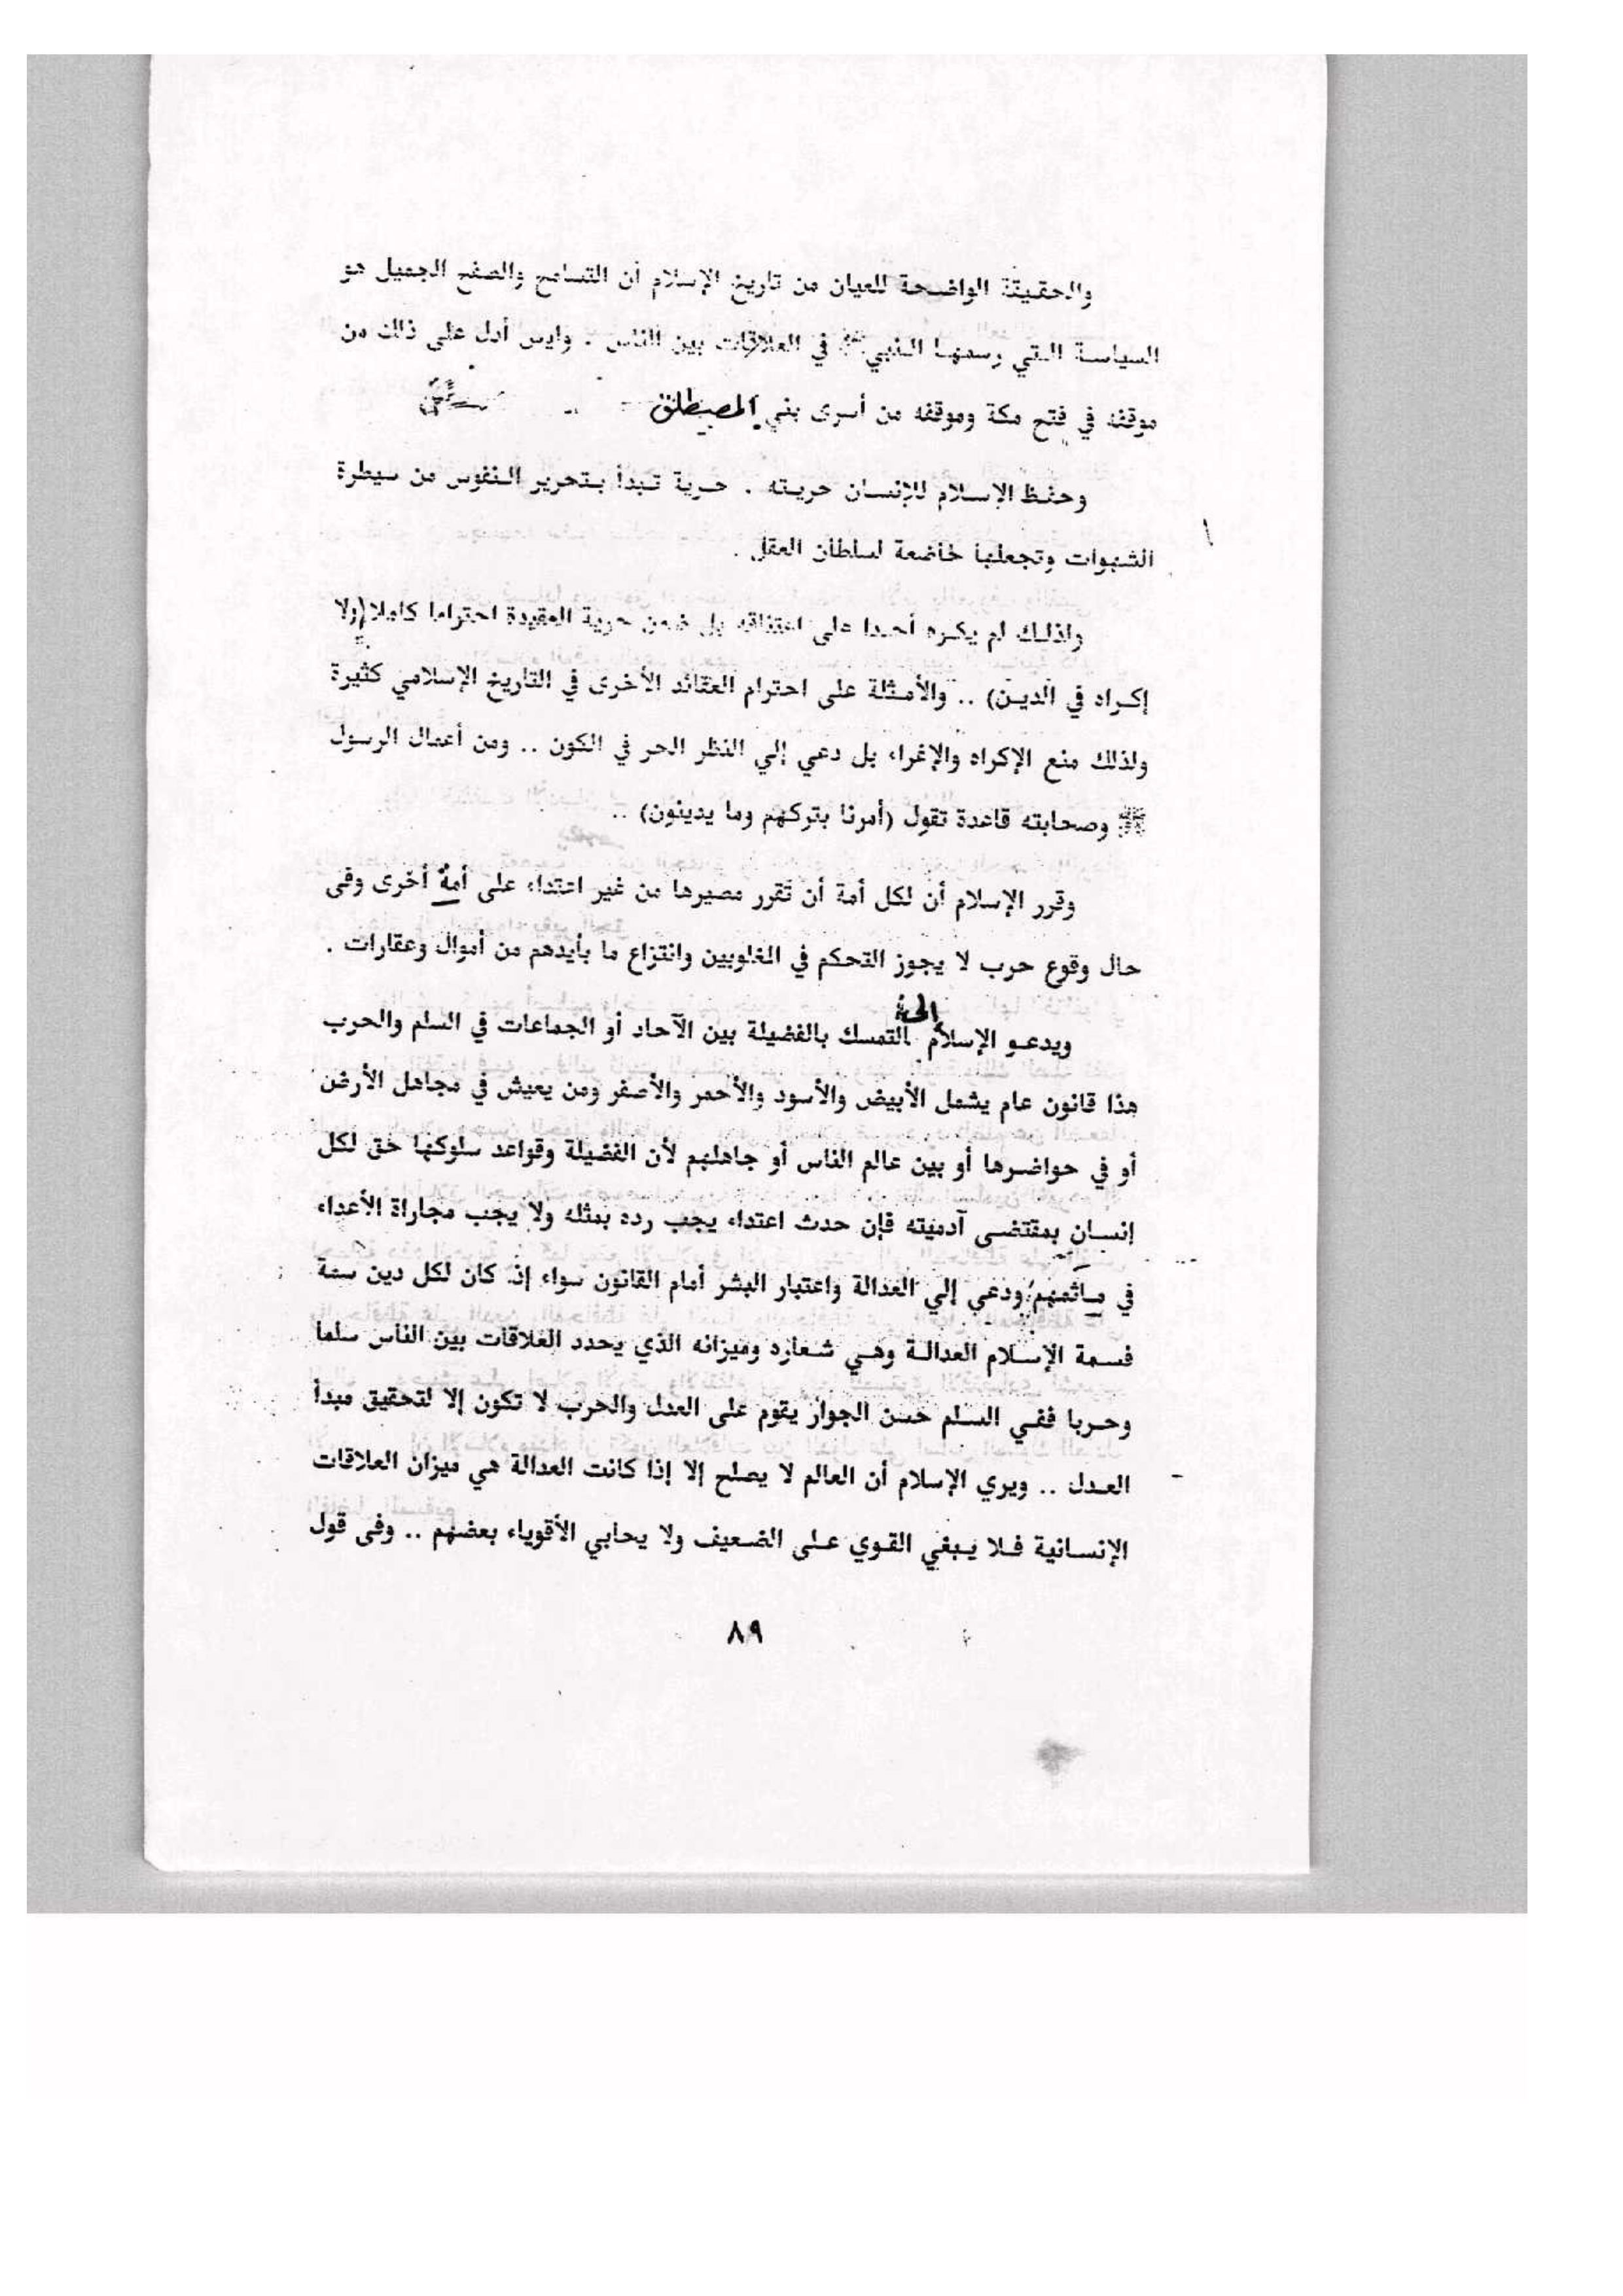 والحقيقة الواضحة للعيان من تاريخ الإسلام أن التسامح والصفح الجميل هو
السياسة التي رسمها النبي ﷺ في العلاقات بين الناس . وليس أدل على ذلك من
موقفه في فتح مكة وموقفه من أسرى بني المصطلق
وحفظ الإسلام للإنسان حريته . حرية تبدأ بتحرير النفوس من سيطرة
الشهوات وتجعلها خاضعة لسلطان العقل .
ولذلك لم يكره أحدا على اعتناقه بل ضمن حرية العقيدة احتراما كاملا (ولا
إكراه في الدين) .. والأمثلة على احترام العقائد الأخرى في التاريخ الإسلامي كثيرة
ولذلك منع الإكراه والإغراء بل دعي إلي النظر الحر في الكون .. ومن أعمال الرسول
ﷺ وصحابته قاعدة تقول (أمرنا بتركهم وما يدينون) ..
وقرر الإسلام أن لكل أمة أن تقرر مصيرها من غير اعتداء على أمة أخرى وفى
حال وقوع حرب لا يجوز التحكم في المغلوبين وانتزاع ما بأيدهم من أموال وعقارات .
ويدعو الإسلام التمسك بالفضيلة بين الآحاد أو الجماعات في السلم والحرب
هذا قانون عام يشمل الأبيض والأسود والأحمر والأصفر ومن يعيش في مجاهل الأرض
أو في حواضرها أو بين عالم الناس أو جاهلهم لأن الفضيلة وقواعد سلوكها حق لكل
إنسان بمقتضى آدميته فإن حدث اعتداء يجب رده بمثله ولا يجب مجاراة الأعداء
في مأثمهم ودعي إلي العدالة واعتبار البشر أمام القانون سواء إذ كان لكل دين سمة
فسمة الإسلام العدالة وهي شعاره وميزانه الذي يحدد العلاقات بين الناس سلما
وحربا ففي السلم حسن الجوار يقوم على العدل والحرب لا تكون إلا لتحقيق مبدأ
العدل .. ويري الإسلام أن العالم لا يصلح إلا إذا كانت العدالة هي ميزان العلاقات
الإنسانية فلا يبغي القوي على الضعيف ولا يحابي الأقوياء بعضهم .. وفى قول
٨٩